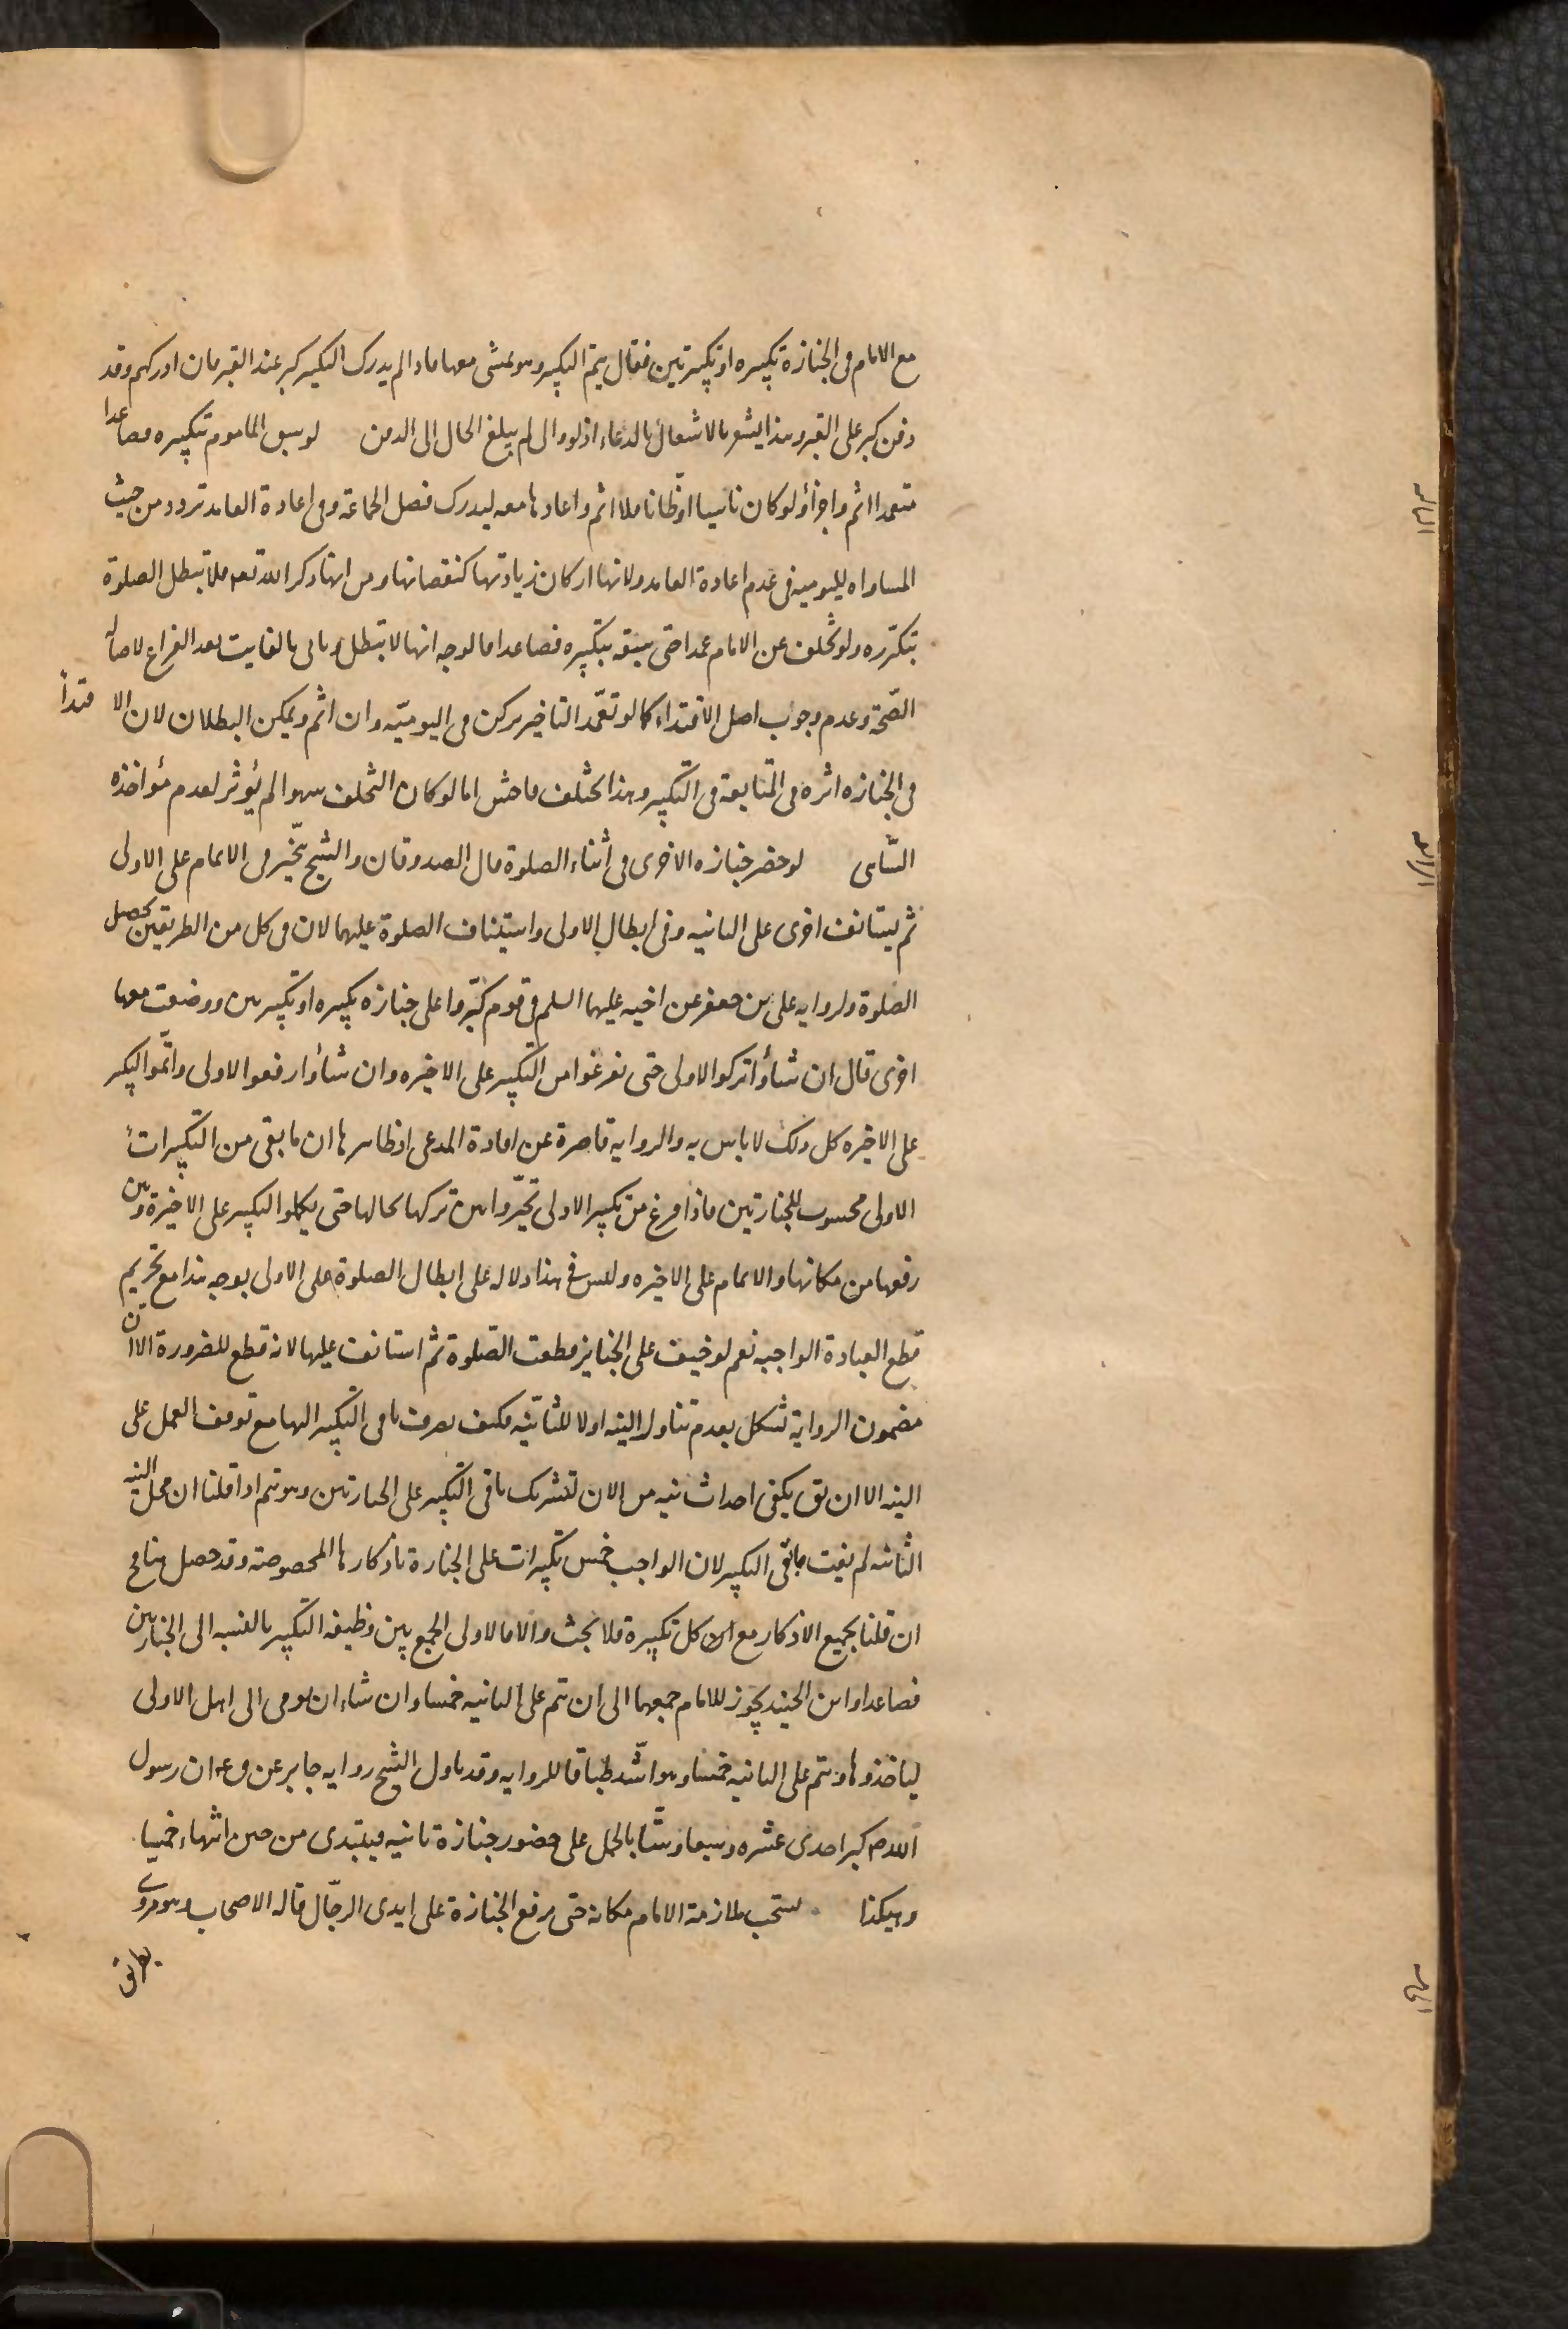 مع الامام فى الجنازة تكبيره او تكبيرتين فقال يتم التكبير وهو يمشى معها فاذا لم يدرك التكبير كبر عند القبر فان ادركهم وقد
دفن كبر على القبر وهذا يشعر بالاشتغال بالدعاء اذ لو والى لم يبلغ الحال الى الدفن لو سبق الماموم بتكبيره فصاعدا
متعمدا اثم واجزأ ولو كان ناسيا او ظانا فلا اثم واعادها معه ليدرك فضل الجماعة وفى اعادة العامد تردد من حيث
المساواه لليوميه فى عدم اعادة العامد ولانها اركان زيادتها كنقصانها ومن انها ذكر الله تعه فلا تبطل الصلوة
بتكرره ولو تخلف عن الامام عمدا حتى سبقه بتكبيره فصاعدا فالوجه انها لا تبطل وياتى بالفايت بعد الفراغ لاصالة
الصّحّة وعدم وجوب اصل الاقتداء كما لو تعمّد التاخير بركن فى اليوميّه وان اثم ويمكن البطلان لان الاقتدأ
فى الجنازه اثره فى المتابعة فى التكبير وهذا تخلف فاحش اما لو كان التخلف سهوا لم يؤثر لعدم مؤاخذه
النّاسى لو حضر جنازه الاخرى فى أثناء الصلوة قال الصدوقان والشيخ يتخير فى الاتمام على الاولى
ثم يستانف اخرى على الثانيه وفى ابطال الاولى واستيناف الصلوة عليهما لان فى كل من الطريقين تحصل
الصلوة ولروايه على بن جعفر عن اخيه عليهما السلم فى قوم كبّروا على جنازه تكبيره او تكبيرتين ووضعت معها
اخرى قال ان شاؤا تركوا الاولى حتى يفرغوا من التكبير على الاخيره وان شاؤا رفعوا الاولى واتمّوا التكبير
على الاخيره كل ذلك لا باس به والروايه قاصرة عن افادة المدعى اذ ظاهرها ان ما بقى من التكبيرات
الاولى محسوب للجنازتين فاذا فرغ من تكبير الاولى تخيّروا بين تركها بحالها حتى يكملوا التكبير على الاخيرة وبين
رفعها من مكانها والاتمام على الاخيره وليس فى هذا دلاله على ابطال الصلوة على الاولى بوجه هذا مع تحريم
قطع العبادة الواجبه نعم لو خيف على الجنايز قطعت الصّلوة ثم استانفت عليها لانه قطع للضرورة الا ان
مضمون الرواية يشكل بعدم تناول النيه اولا للثانيّه فكيف يصرف باقى التكبير اليها مع توقف العمل على
النيه الا ان يق يكفى احداث نيه من الان لتشريك باقى التكبير على الجنازتين وهو يتم اذا قلنا ان محل النيه
الثانيه لم يفت ببقى التكبير لان الواجب خمس تكبيرات على الجنازة باذكارها المخصوصه وقد حصل هنا مع
ان قلنا بجميع الاذكار مع كل تكبيرة فلا بحث والا فالاولى الجمع بين وظيفه التكبير بالنسبه الى الجنازتين
فصاعدا وابن الجنيد يجوز للامام جمعهما الى ان يتم على الثانيه خمسا وان شاء ان يومى الى اهل الاولى
لياخذوها ويتم على الثانيه خمسا وهو اشّد طباقا للروايه وقد ناول الشيخ روايه جابر عن ق ع ان رسول
اللدص كبر احدى عشره وسبعا وستّا بالحمل على حضور جنازة ثانيه فيبتدى من حين انتهاء خمسا
وهيكذا يستحب ملازمة الامام مكانه حتى يرفع الجنازة على ايدى الرجّال قاله الاصحاب وهو مروى